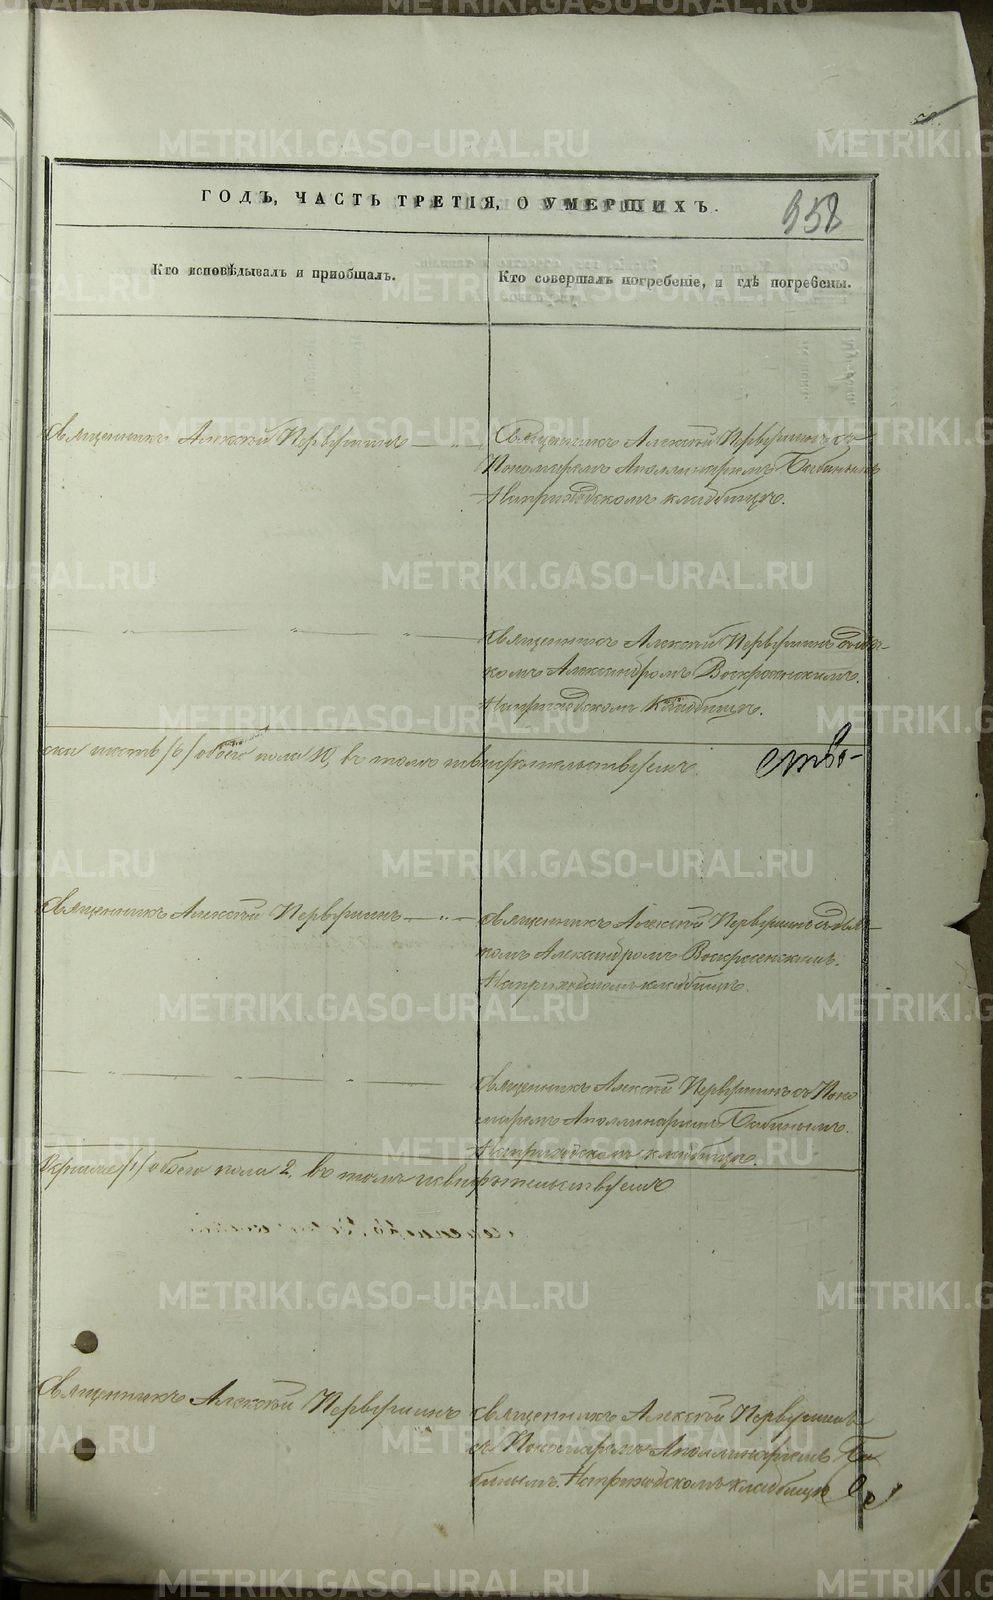 ГОДЪ, ЧАСТЬ ТРЕТІЯ, О УМЕРШИХЪ.
958
Кто исповѣдывалъ и приобщалъ.
Кто совершалъ погребеніе, и гдѣ погребены.
Священникъ Алексѣй Первушинъ
Священникъ Алексѣй Первушинъ съ
Пономаремъ Аполлинаріемъ Бабинымъ
На приходскомъ кладбищѣ.
Священникъ Алексѣй Первушинъ с дья-
комъ Александромъ Воскресенскимъ.
На приходскомъ кладбищѣ.
обоего пола 10, въ томъ свидѣтельствуемъ.
Священникъ Алексѣй Первушинъ
Священникъ Алексѣй Первушинъ с дья-
комъ Александромъ Воскресенскимъ.
На приходскомъ кладбищѣ.
Священникъ Алексѣй Первушинъ съ Поно
маремъ Аполлинаріемъ Бабинымъ.
На приходскомъ кладбищѣ.
обоего пола 2, въ томъ и свидѣтельствуемъ
Священникъ Алексѣй Первушинъ
Священникъ Алексѣй Первушинъ
съ Пономаремъ Аполлинаріемъ Ба-
бинымъ. На приходскомъ кладбищѣ
METRIKI.GASO-URAL.RU